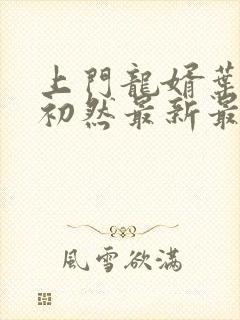 上門龍婿葉
初然最新最
風雪欲滿